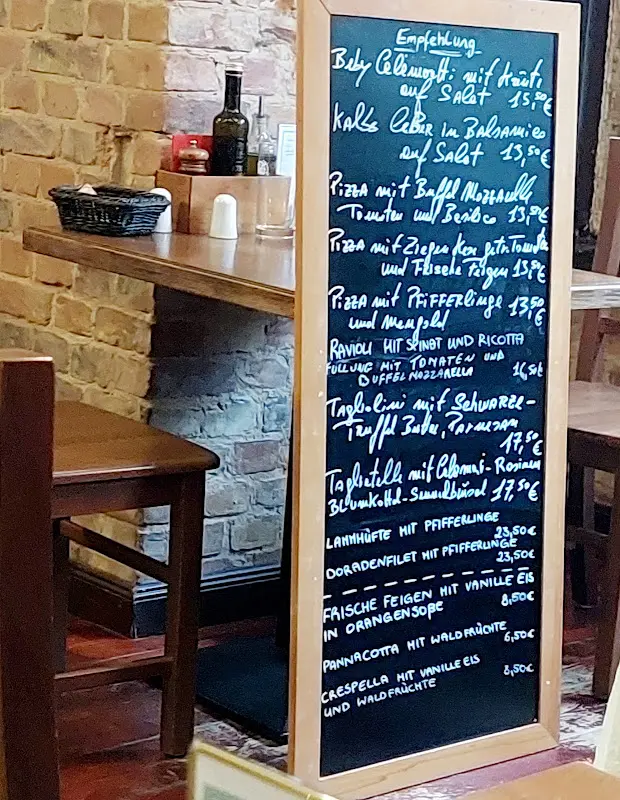 Empfehlung
Baby Calamaretti mit Kräut.
auf Salat 15,50€
Kalbsleber in Balsamico
auf Salat 13,50€
PIZZA mit Büffel Mozzarella
Tomaten und Basilico 13,50€
PIZZA mit Ziegenkäse getr. Tomaten
und Frische Feigen 13,50€
PIZZA mit PFIFFERLINGE 13,50€
und Mangold
RAVIOLI MIT SPINAT UND RICOTTA
FÜLLUNG MIT TOMATEN UND
BÜFFELMOZZARELLA 16,50€
Tagliolini mit SCHWARZE-
Trüffel Butter, Parmesan
17,50€
Tagliatelle mit Rosinen
BLUMKOHL- 17,50€
LAMMHÜFTE MIT PFIFFERLINGE
23,50€
DORADENFILET MIT PFIFFERLINGE
23,50€
FRISCHE FEIGEN MIT VANILLE EIS
IN ORANGENSOßE 8,50€
PANNACOTTA MIT WALDFRÜCHTE
6,50€
CRESPELLA MIT VANILLE EIS 8,50€
UND WALDFRÜCHTE